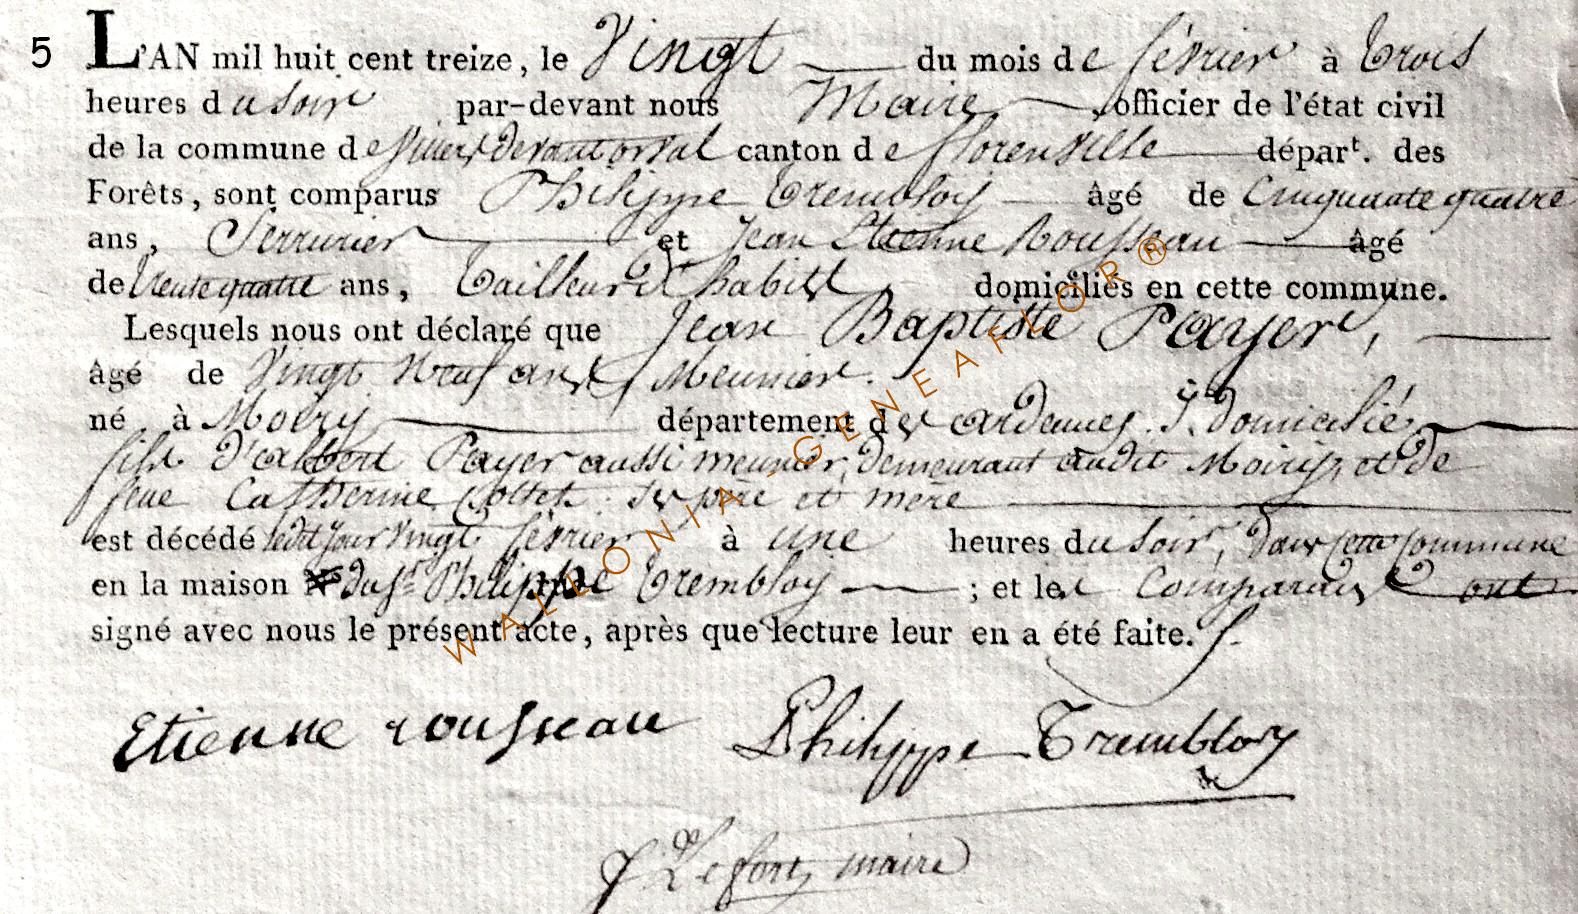 5 L'AN mil huit cent treize, le Vingt du mois de février à trois
heures du soir par-devant nous Maire, officier de l'état civil
de la commune de devant orval canton de florenville départ. des
Forêts, sont comparus Philippe Trembloy âgé de Cinquante quatre
ans, Serrurier et Jean Etienne Rousseau âgé
de trente quatre ans, Tailleur d'habits domiciliés en cette commune.
Lesquels nous ont déclaré que Jean Baptiste Payer,
âgé de Vingt Neuf ans, Meunier.
né à Moiry département des ardennes. Y domicilié
fils d'albert Payer aussi meunier, demeurant audit Moiry, et de
feue Catherine ses père et mère
est décédé ledit jour vingt février à une heures du soir, dans cette commune
en la maison du sr Philippe Trembloy ; et les Comparants ont
signé avec nous le présent acte, après que lecture leur en a été faite.
Etienne rousseau Philippe Trembloy
J Lefort, maire
WALLONIA-GENEAFLOR®